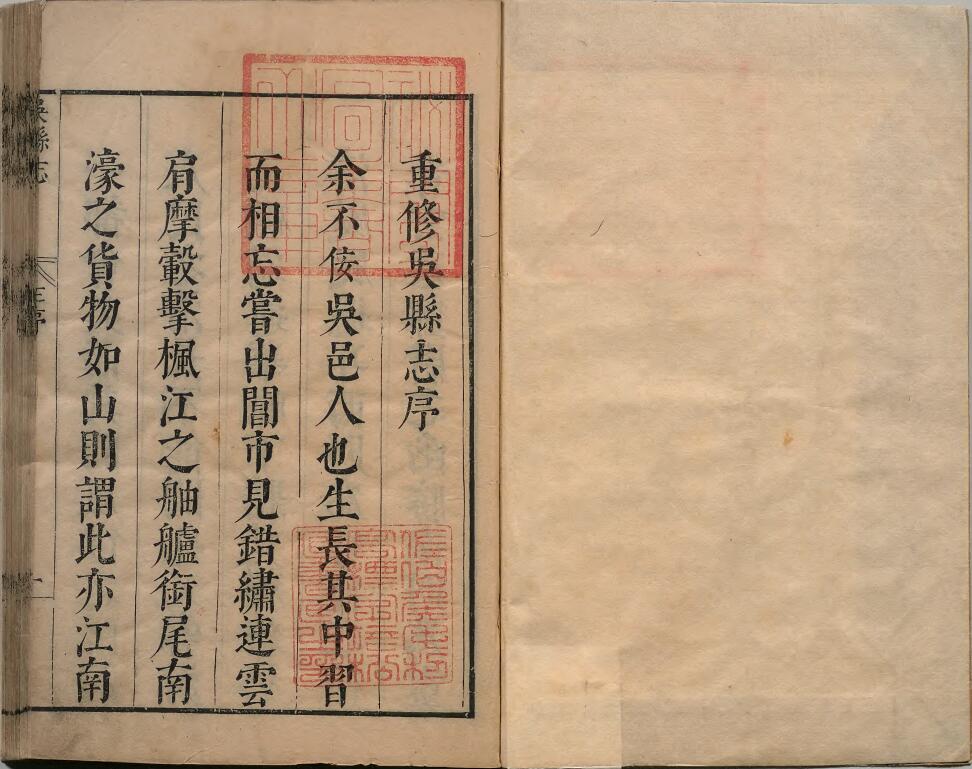 重修吳縣志序
余不佞吳邑人也生長其中習
而相忘嘗出閶市見錯繡連雲
肩摩轂擊楓江之舳艫銜尾南
濠之貨物如山則謂此亦江南
吳縣志
序
一